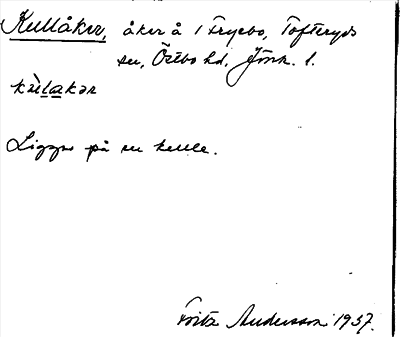 Kullåker, åker å 1 Fryebo, Tofteryds
sn, Östbo hd, Jönk. l.
kùlakər
Ligger på en kulle.
Fritz Andersson 1937.